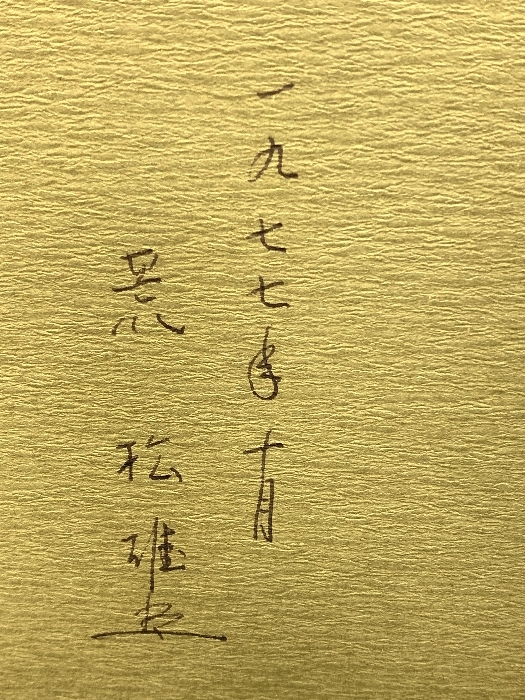 一九七七年十月
荒松雄